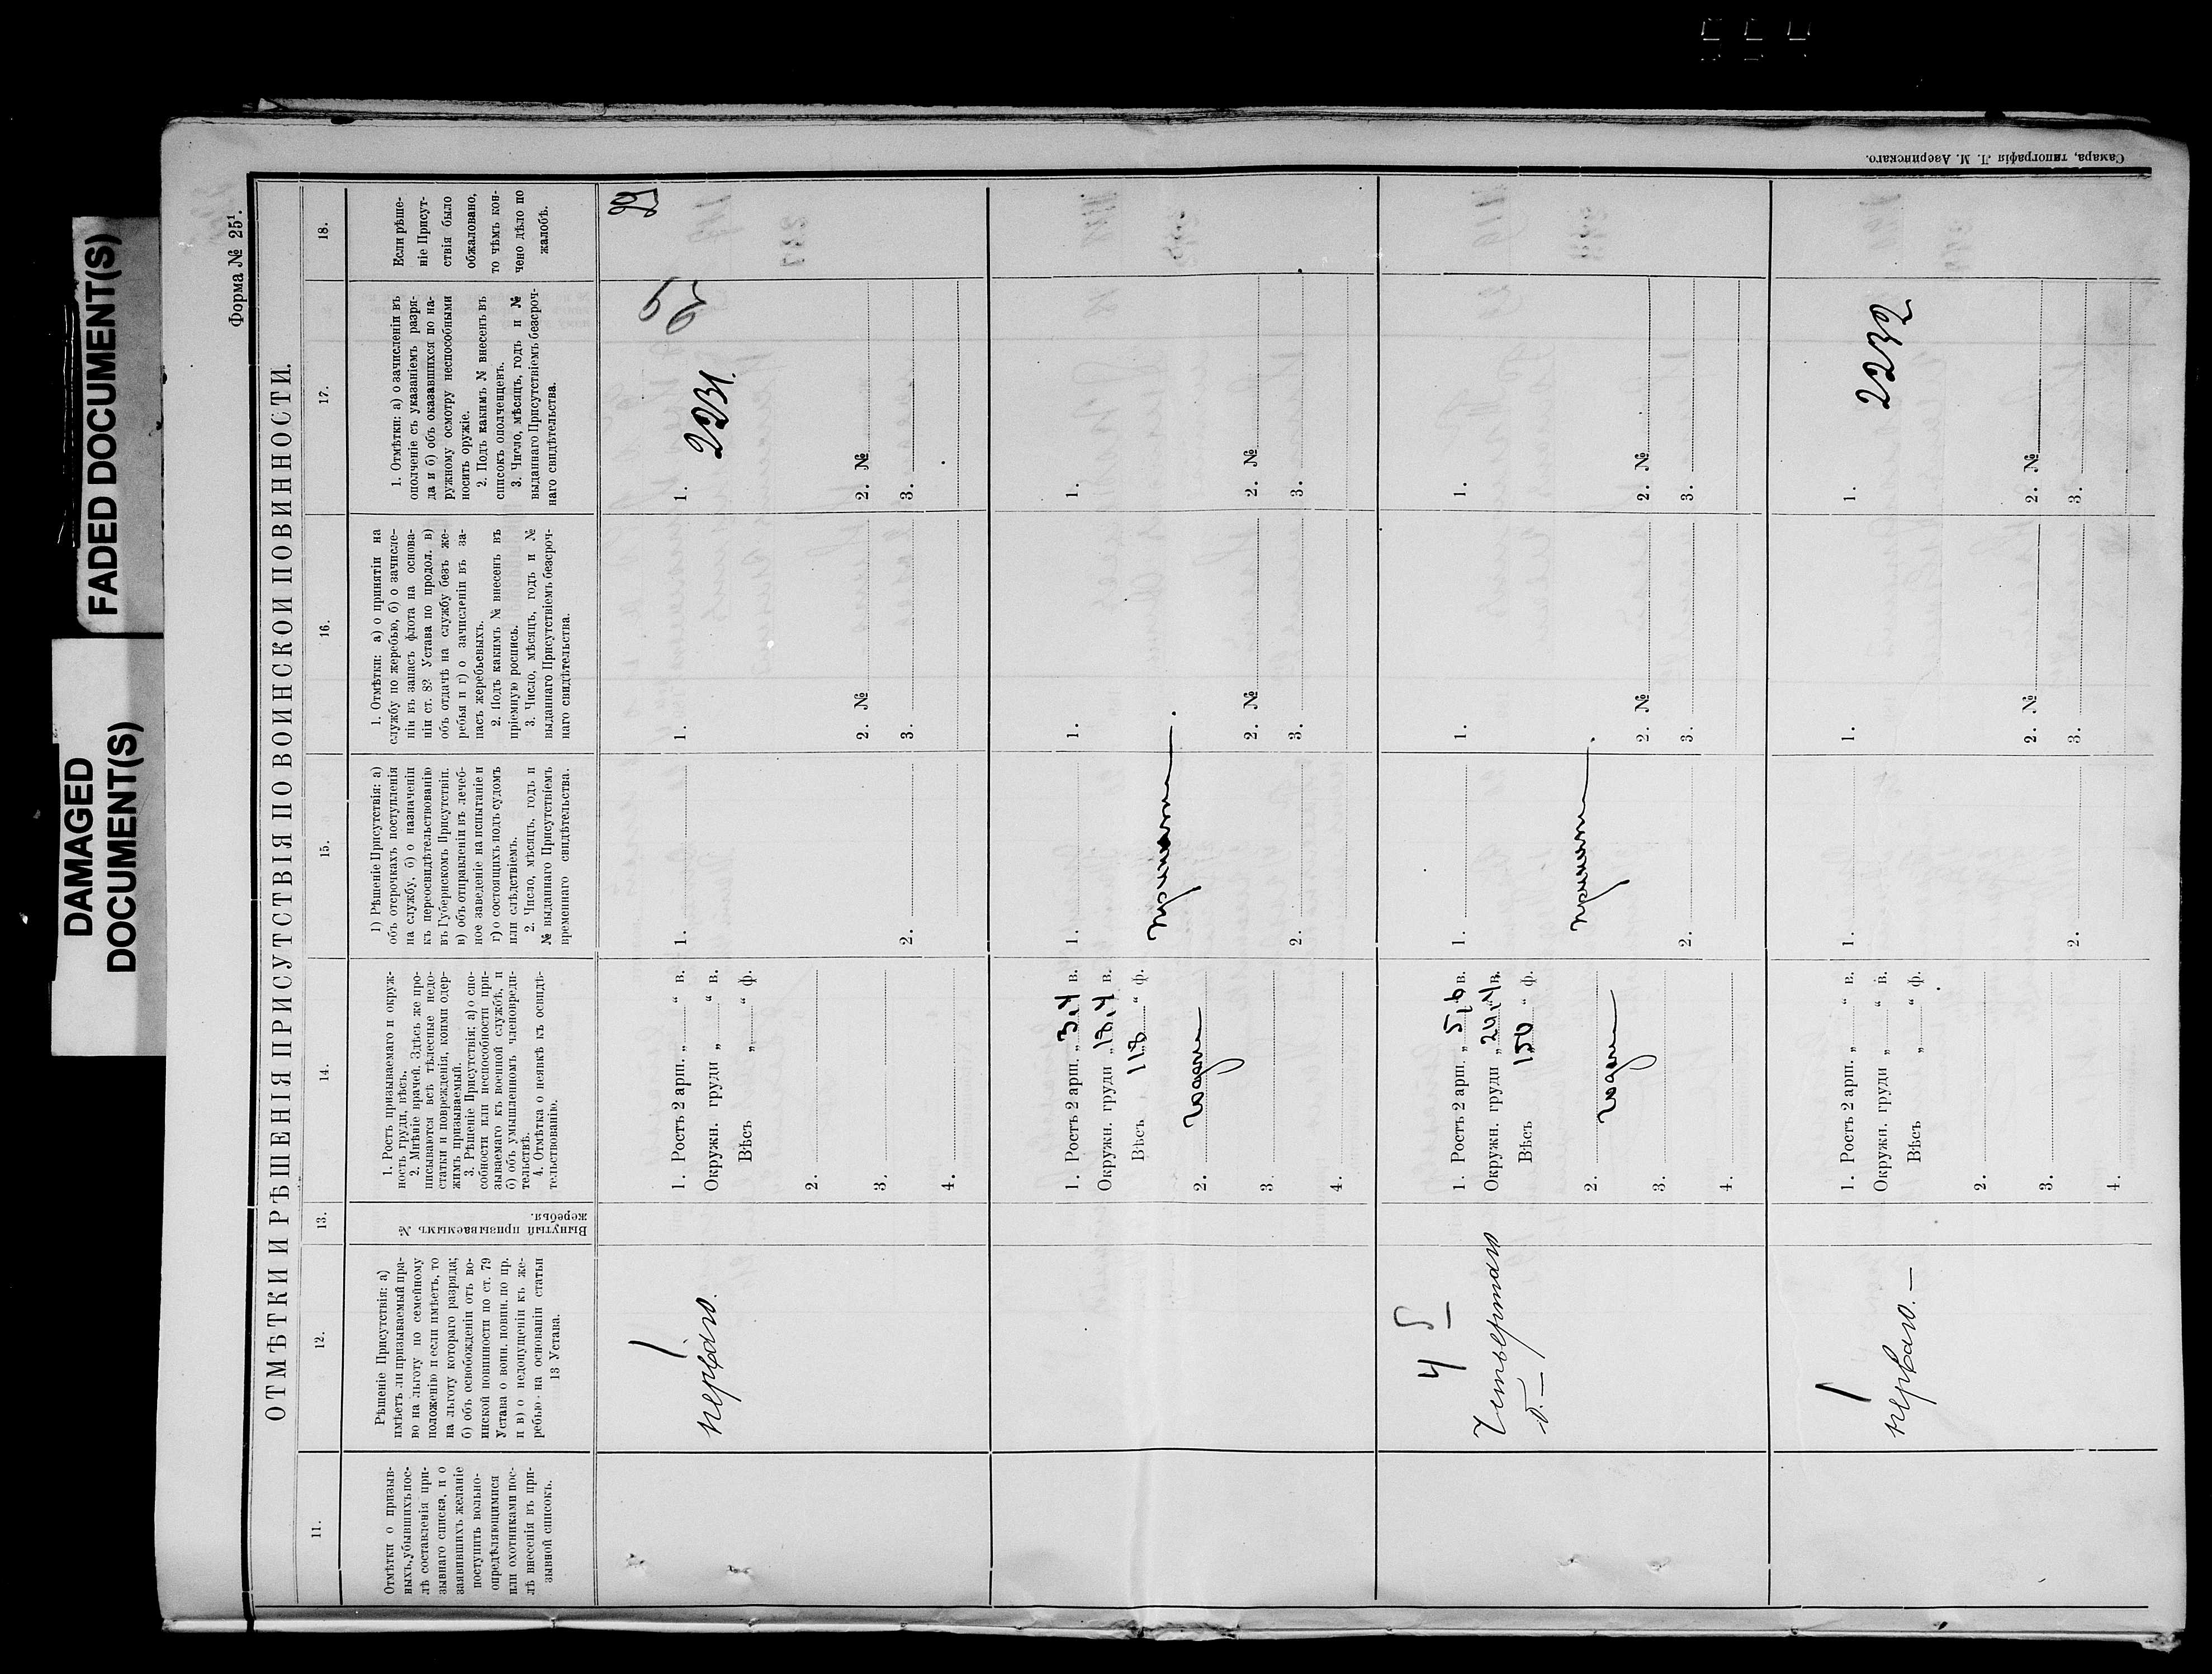 FADED DOCUMENT(S)
DAMAGED
DOCUMENT(S)
Форма № 25¹.
ОТМѢТКИ И РѢШЕНІЯ ПРИСУТСТВІЯ ПО ВОИНСКОЙ ПОВИННОСТИ.
11.
12.
13.
14.
15.
16.
17.
18.
Отмѣтки о призыв-
ныхъ, убывшихъ пос-
лѣ составленія при-
зывнаго списка, и о
заявившихъ желаніе
поступить вольно-
опредѣляющимися
или охотниками пос-
лѣ внесенія въ при-
зывной списокъ.
Рѣшеніе Присутствія: а)
имѣетъ ли призываемый пра-
во на льготу по семейному
положенію и если имѣетъ, то
на льготу котораго разряда;
б) объ освобожденіи отъ во-
инской повинности по ст. 79
Устава о воин. повин. по пр.
и в) о недопущеніи къ же-
ребью на основаніи статьи
13 Устава.
Вынутый призываемымъ №
жеребья.
1. Ростъ призываемаго и окруж-
ность груди, вѣсъ.
2. Мнѣніе врачей. Здѣсь же про-
писываются всѣ тѣлесные недо-
статки и поврежденія, коими одер-
жимъ призываемый.
3. Рѣшеніе Присутствія: а) о спо-
собности или неспособности при-
зываемаго къ военной службѣ, и
б) объ умышленномъ членовреди-
тельствѣ.
4. Отмѣтка о неявкѣ къ освидѣ-
тельствованію.
1) Рѣшеніе Присутствія: а)
объ отсрочкахъ поступленія
на службу, б) о назначеніи
къ переосвидѣтельствованію
въ Губернскомъ Присутствіи,
в) объ отправленіи въ лечеб-
ное заведеніе на испытаніе и
г) о состоящихъ подъ судомъ
или слѣдствіемъ.
2. Число, мѣсяцъ, годъ и
№ выданнаго Присутствіемъ
временнаго свидѣтельства.
1. Отмѣтки: а) о принятіи на
службу по жеребью, б) о зачисле-
ніи въ запасъ флота на основа-
ніи ст. 82 Устава по продол. в)
объ отдачѣ на службу безъ же-
ребья и г) о зачисленіи въ за-
пасъ жеребьевыхъ.
2. Подъ какимъ № внесенъ въ
пріемную роспись.
3. Число, мѣсяцъ, годъ и №
выданнаго Присутствіемъ безсроч-
наго свидѣтельства.
1. Отмѣтки: а) о зачисленіи въ
ополченіе съ указаніемъ разря-
да и б) объ оказавшихся по на-
ружному осмотру неспособными
носить оружіе.
2. Подъ какимъ № внесенъ въ
списокъ ополченцевъ.
3. Число, мѣсяцъ, годъ и №
выданнаго Присутствіемъ безсроч-
наго свидѣтельства.
Если рѣше-
ніе Присут-
ствія было
обжаловано,
то чѣмъ кон-
чено дѣло по
жалобѣ.
1
перваго.
1. Ростъ 2 арш. „ “ в.
Окружн. груди „ “ в.
Вѣсъ „ “ ф.
2.
3.
4.
1.
2.
1.
2. №
3.
1.
2231.
2. №
3.
1. Ростъ 2 арш. „ 3,4 в.
Окружн. груди „ 18,4 в.
Вѣсъ 118 “ ф.
2. годен
3.
4.
1.
принят.
2.
1.
2. №
3.
1.
2. №
3.
4 5
Четвертаго
б. —
1. Ростъ 2 арш. „ 5,6 в.
Окружн. груди „ 20,4 в.
Вѣсъ 150 “ ф.
2. годен
3.
4.
1.
принят.
2.
1.
2. №
3.
1.
2. №
3.
1
перваго. —
1. Ростъ 2 арш. „ “ в.
Окружн. груди „ “ в.
Вѣсъ „ “ ф.
2.
3.
4.
1.
2.
1.
2. №
3.
1.
2232
2. №
3.
Самара, типографія Л. М. Азеринскаго.